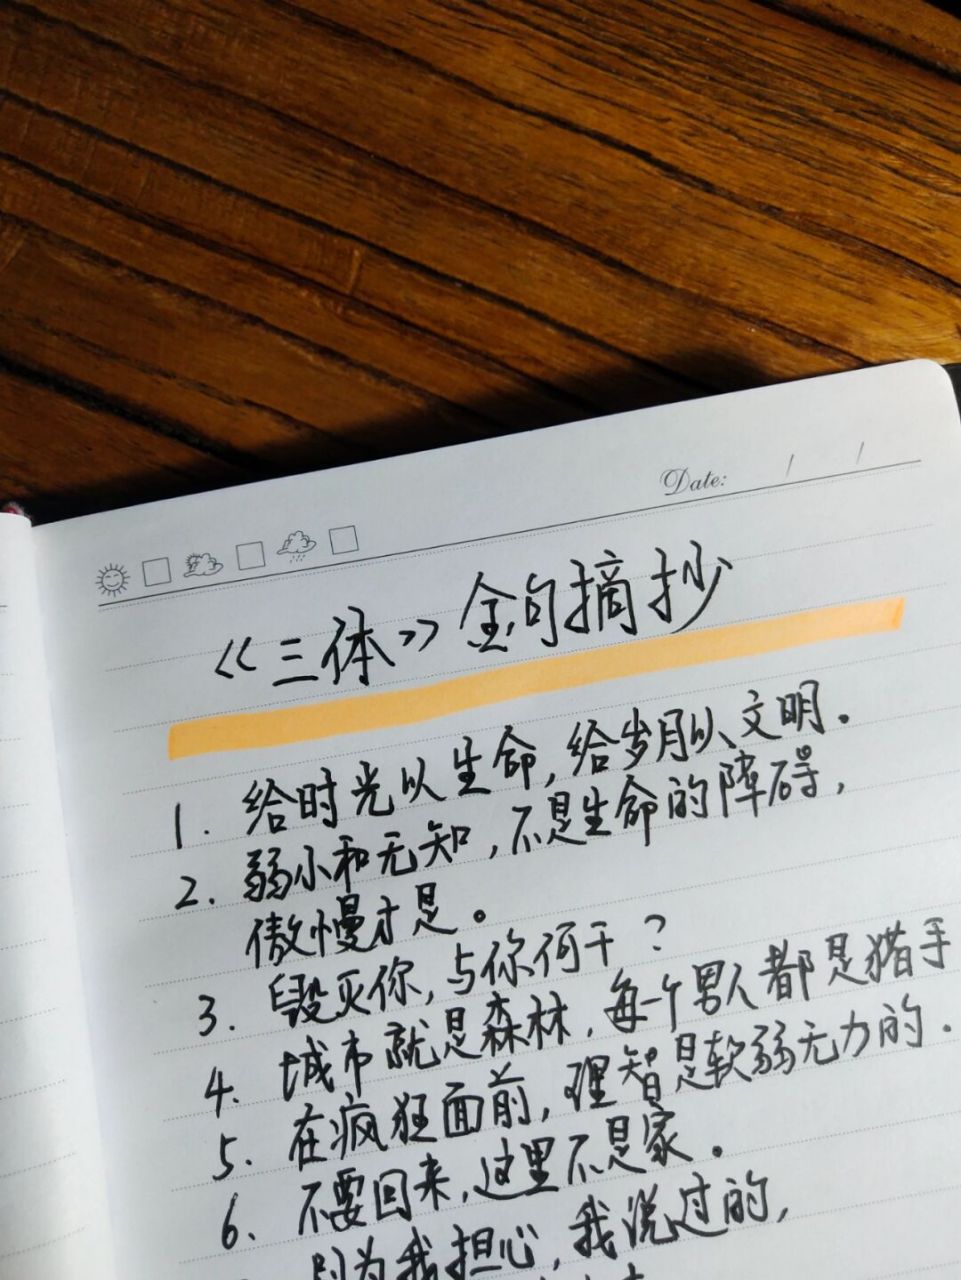 Date: / /
《三体》金句摘抄
1. 给时光以生命,给岁月以文明.
2. 弱小和无知,不是生命的障碍,
傲慢才是。
3. 毁灭你,与你何干?
4. 城市就是森林,每一个男人都是猎手
5. 在疯狂面前,理智是软弱无力的.
6. 不要回来,这里不是家.
因为我担心,我说过的,